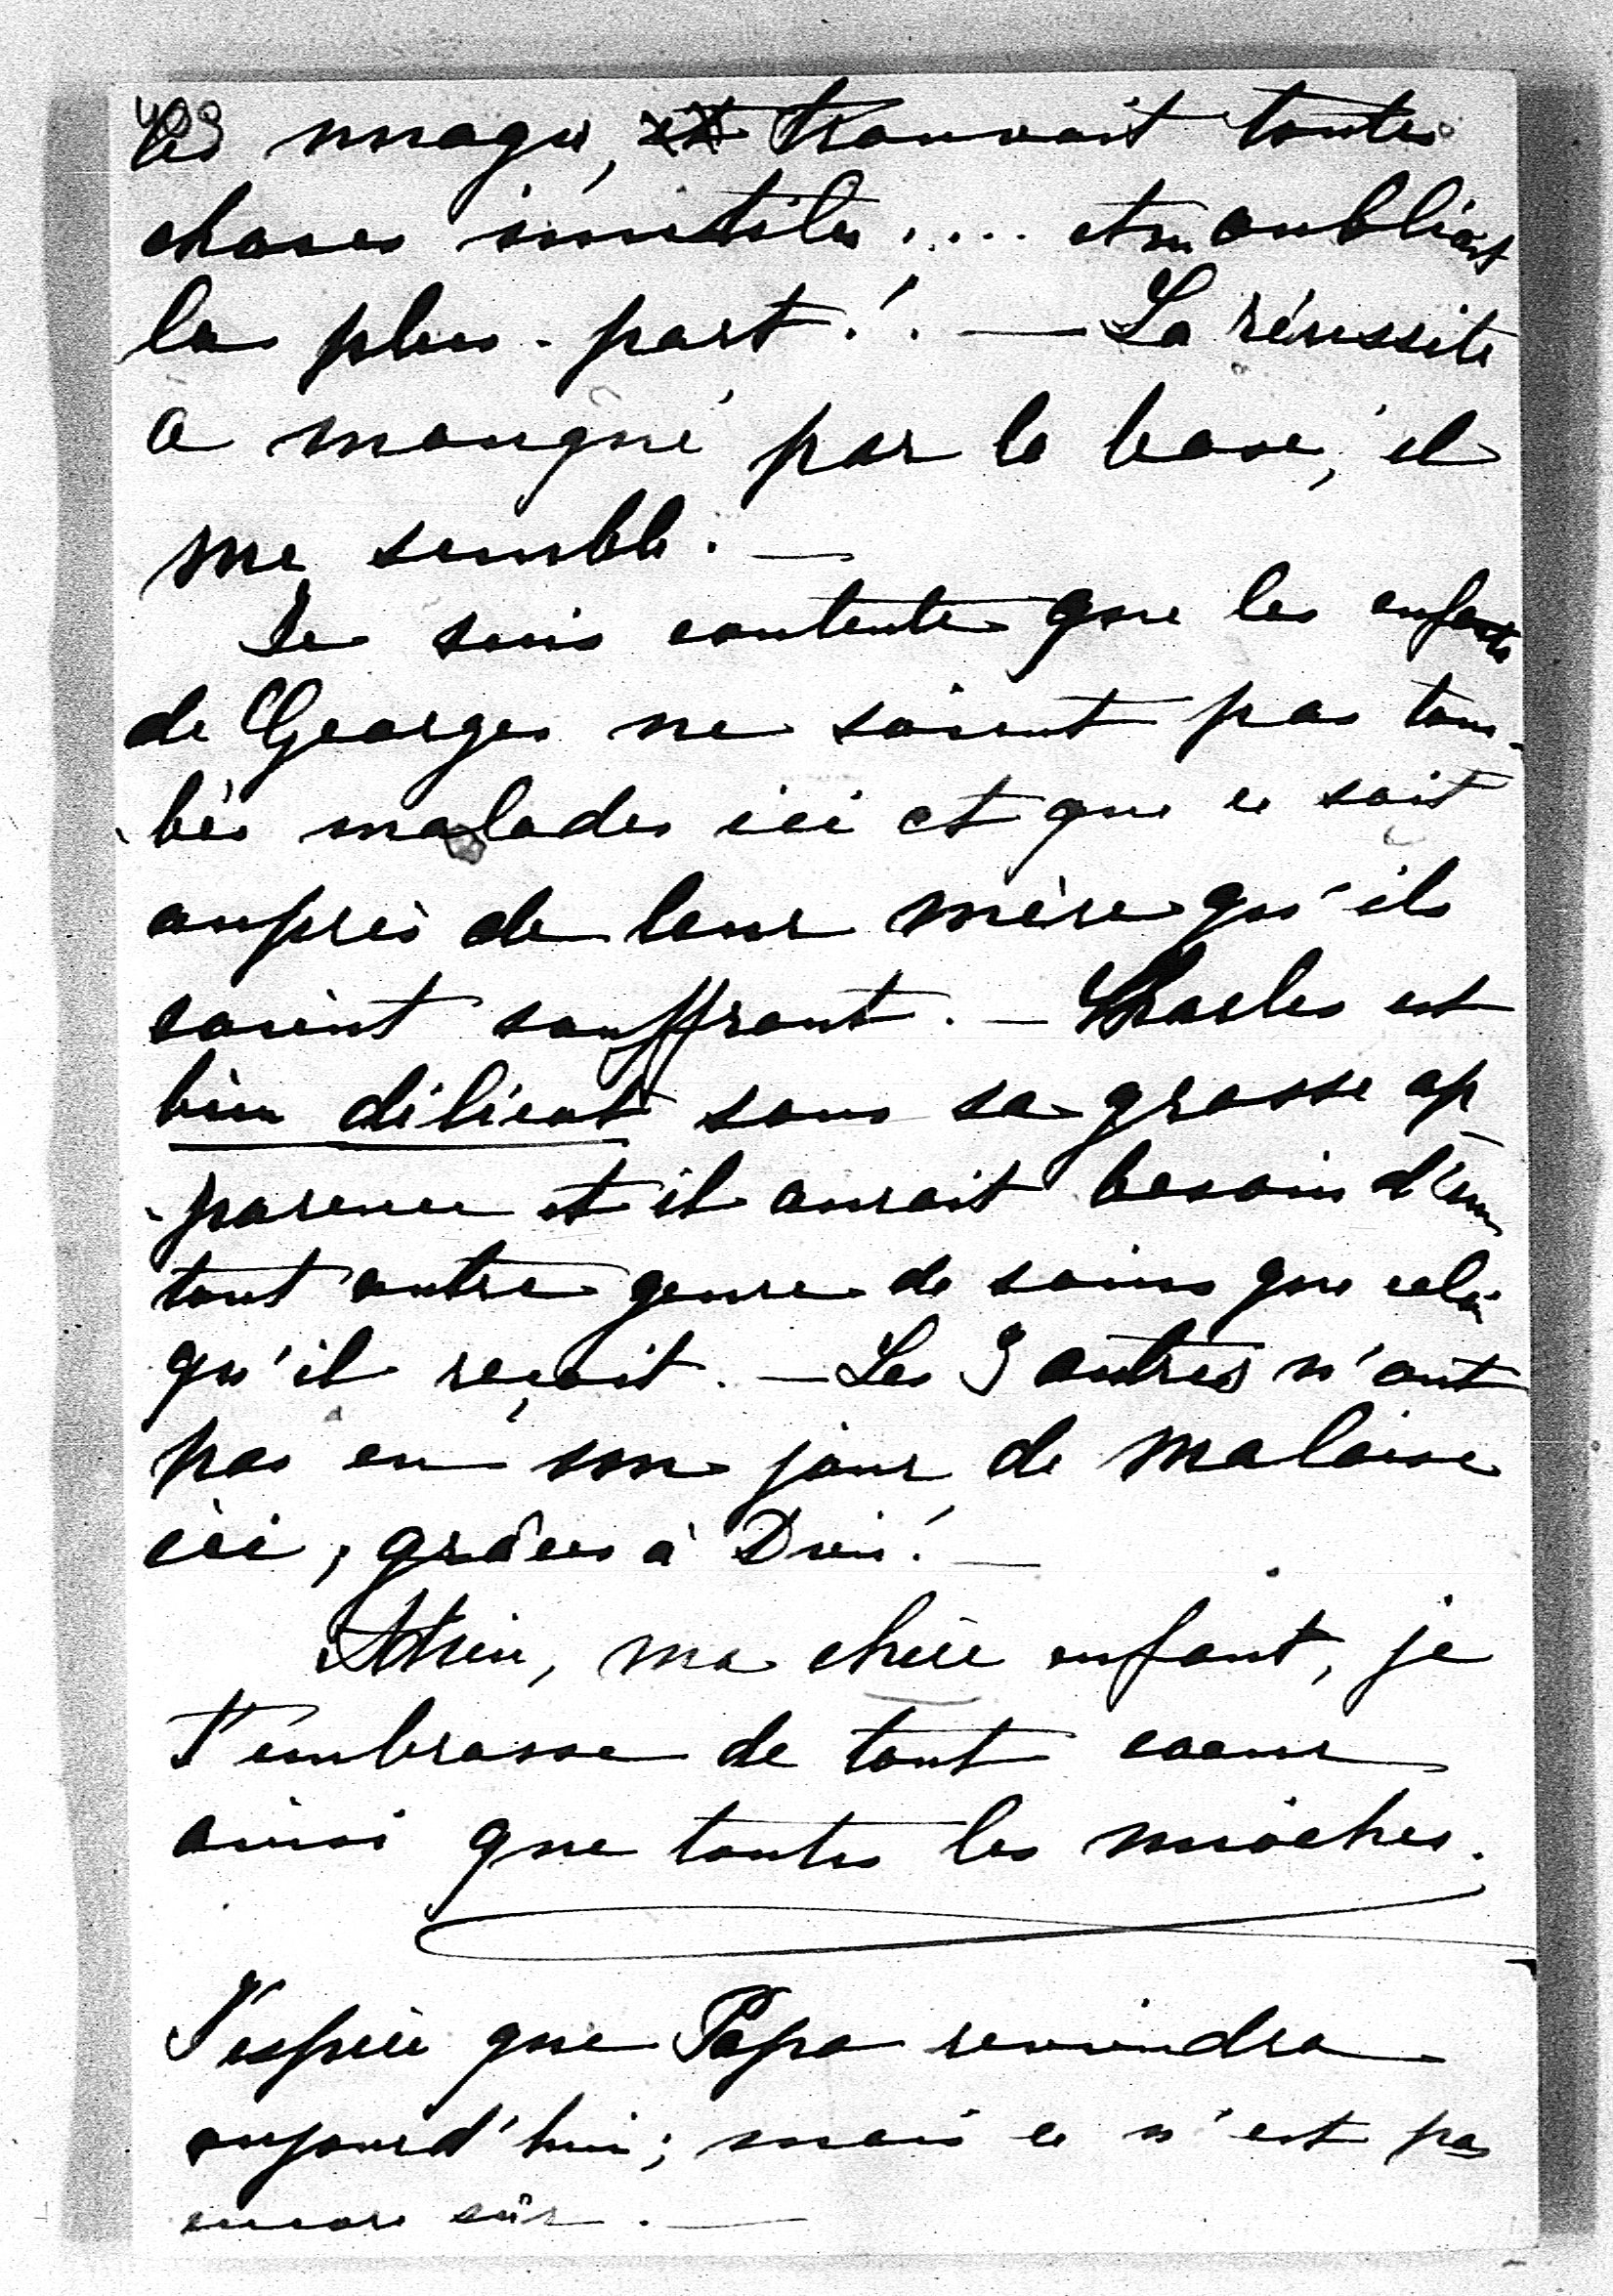 les nuages, trouvait toutes
choses inutiles .... et en oubliait
la plus-part! . — La réussite
a manqué par la base, il
me semble. —
Je suis contente que les enfants
de Georges ne soient pas tom-
bés malades ici et que ce soit
auprès de leur mère qu'ils
soient souffrant. — Charles est
bien délicat sous sa grosse ap
-parence et il aurait besoin d'un
tout autre genre de soins que celui
qu'il reçoit. — Les 3 autres n'ont
pas eu un jour de malaise
ici, grâces à Dieu! —
Adieu, ma chère enfant, je
t'embrasse de tout coeur
ainsi que toutes les mioches.
J'espère que Papa reviendra
aujourd'hui; mais ce n'est pas
encore sûr. —